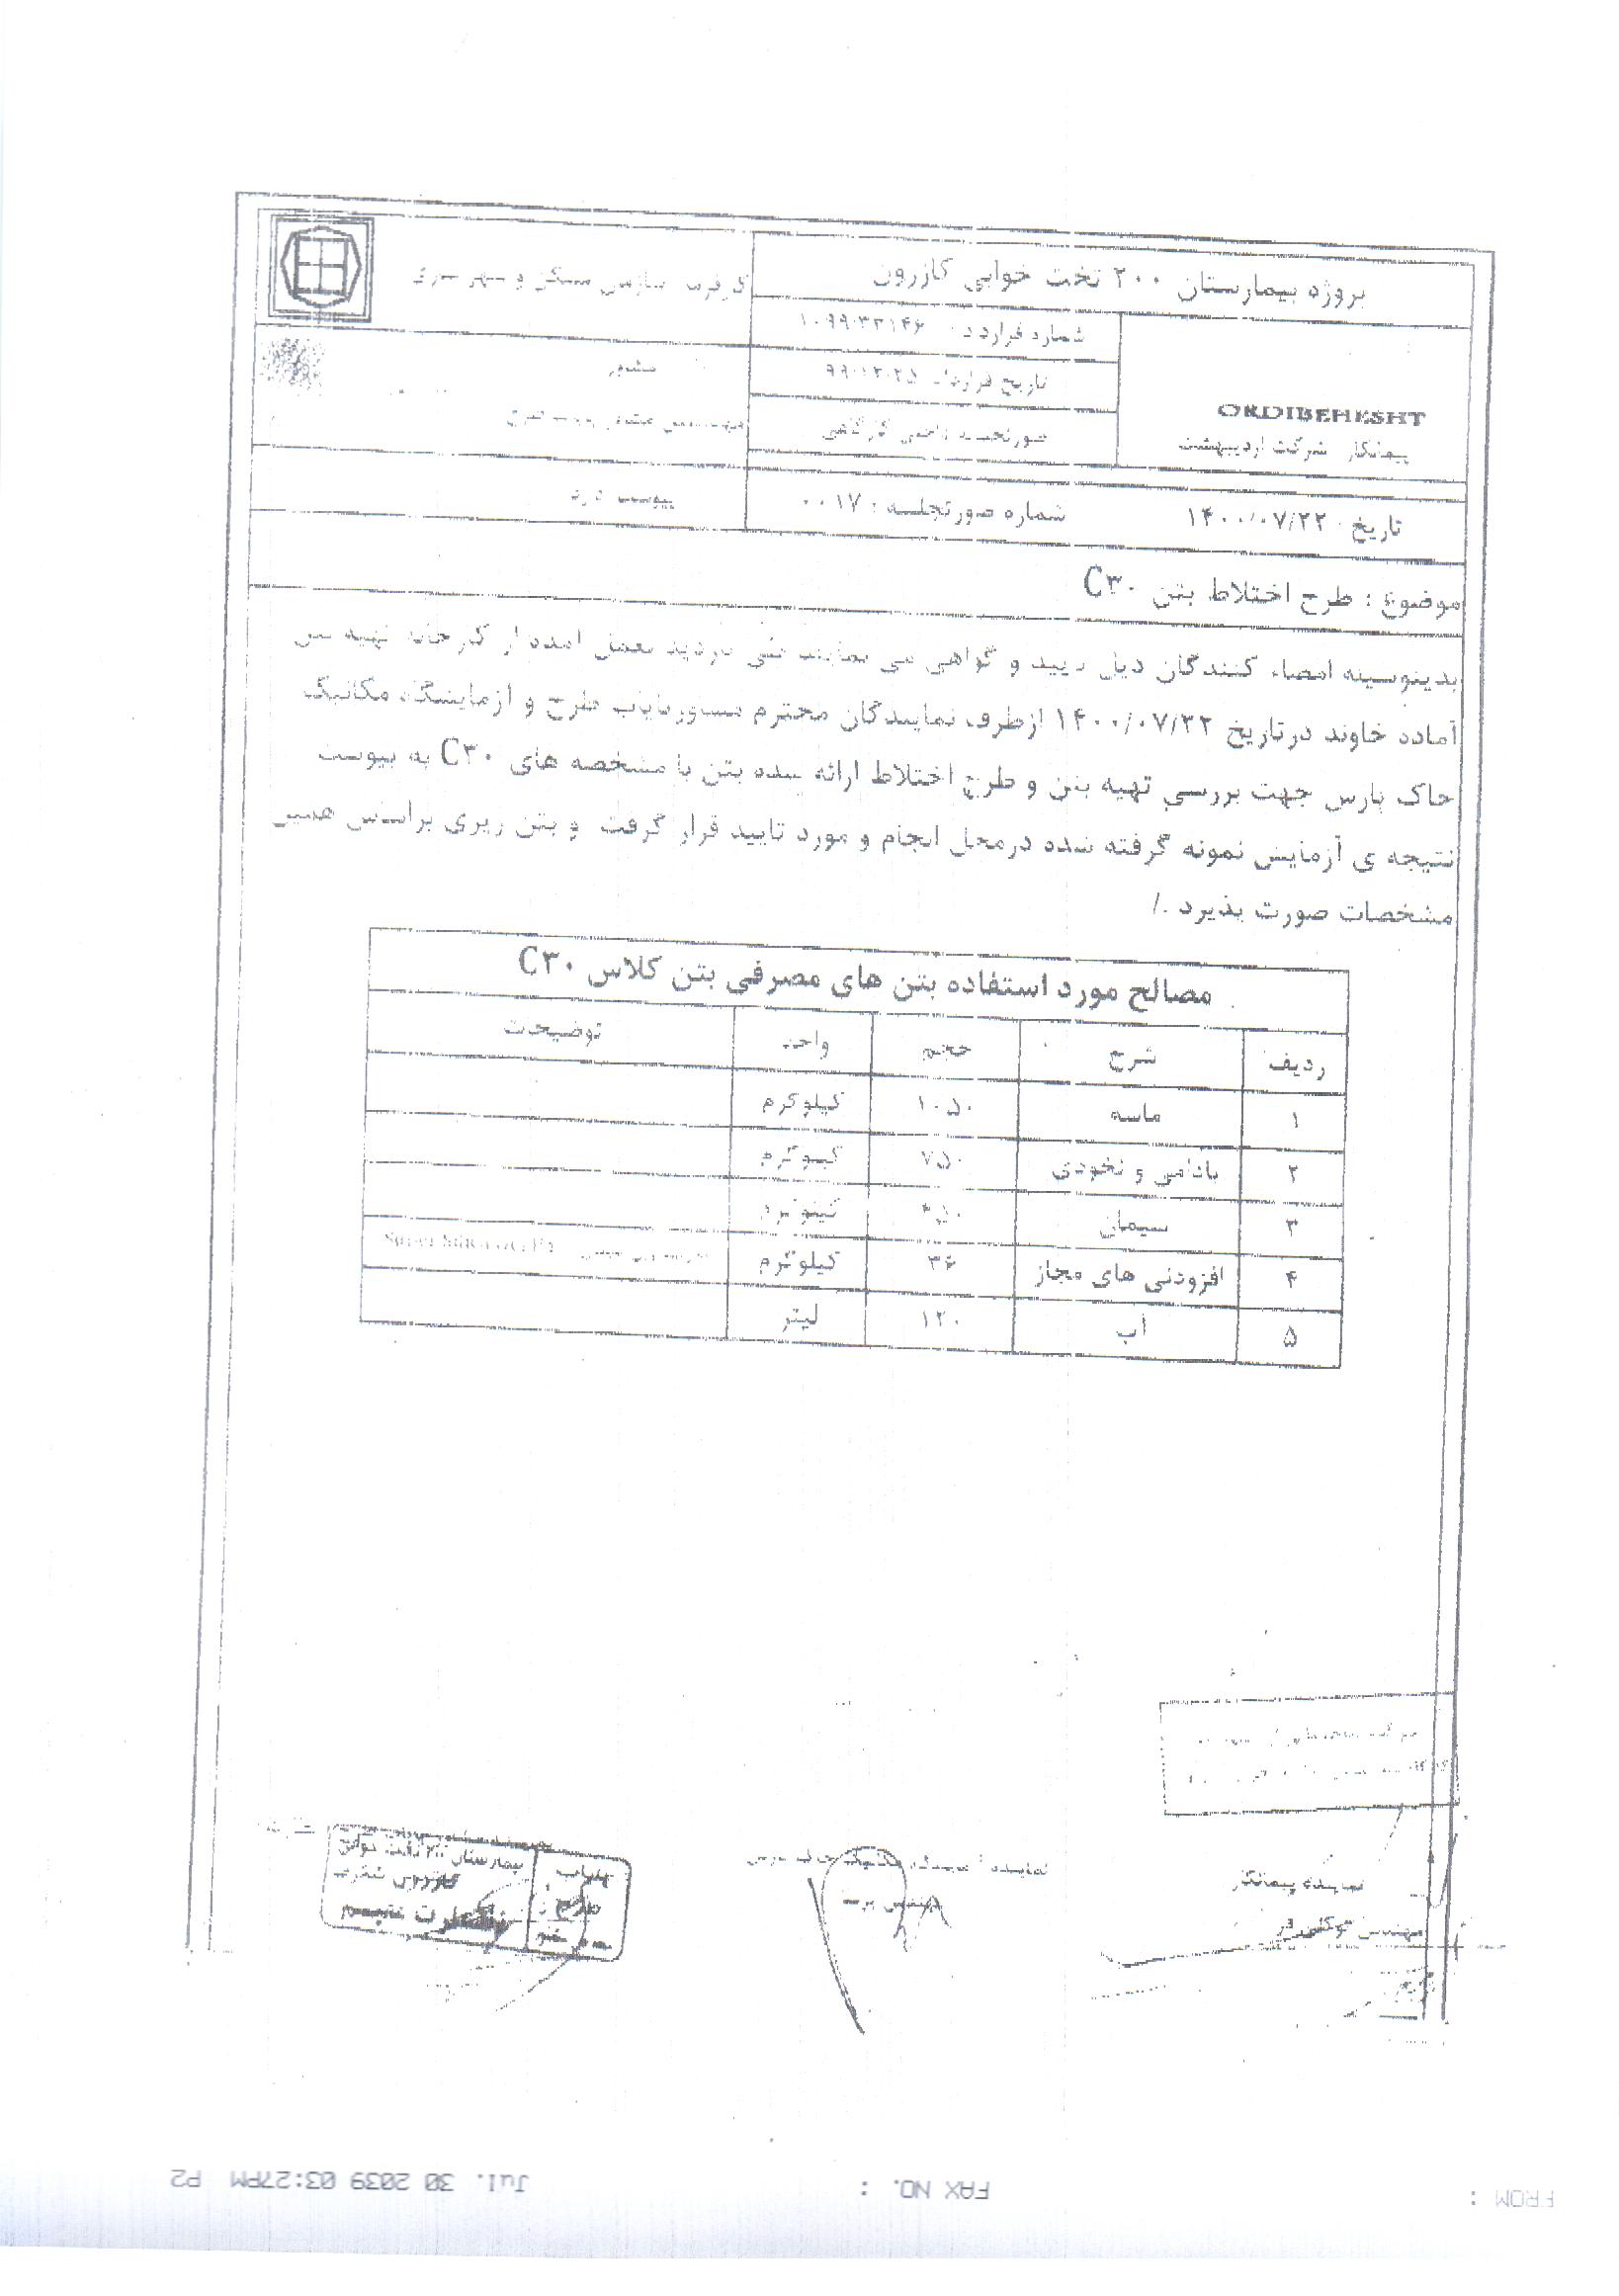 پروژه بیمارستان ۲۰۰ تخت خوابی کازرون
کارفرما سازمان مسکن و شهر سازی
شماره قرارداد : ۱۰۹۹۰۳۳۱۴۶
تاریخ قرارداد ۹۹.۱۲.۲۵
مشاور
ORDIBEHESHT
پیمانکار شرکت اردیبهشت
صورتجلسه داخلی کارگاهی
تاریخ : ۱۴۰۰/۰۷/۲۲
شماره صورتجلسه : ۰۰۱۷
پیوست دارد
موضوع : طرح اختلاط بتن C۳۰
بدینوسیله امضاء کنندگان ذیل تایید و گواهی می نمایند طی بازدید بعمل آمده از کارخانه تهیه بتن
آماده خاوند درتاریخ ۱۴۰۰/۰۷/۲۲ ازطرف نمایندگان محترم مشاورنایاب طرح و آزمایشگاه مکانیک
خاک پارس جهت بررسی تهیه بتن و طرح اختلاط ارائه شده بتن با مشخصه های C۳۰ به پیوست
نتیجه ی آزمایش نمونه گرفته شده درمحل انجام و مورد تایید قرار گرفت و بتن ریزی براساس همین
مشخصات صورت پذیرد ./
مصالح مورد استفاده بتن های مصرفی بتن کلاس C۳۰
ردیف شرح حجم واحد توضیحات
۱ ماسه ۱۰۵۰ کیلوگرم
۲ بادامی و نخودی ۷۵۰ کیلوگرم
۳ سیمان ۴۵۰ کیلوگرم
۴ افزودنی های مجاز ۳۶ کیلوگرم
۵ آب ۱۲۰ لیتر
نماینده پیمانکار
مهندس توکلی فر
نماینده : آزمایشگاه مکانیک خاک پارس
مهندس
بیمارستان ۲۰۰ تخت خوابی
نظارت مقیم
FROM :
FAX NO. :
Jul. 30 2039 03:27PM P2